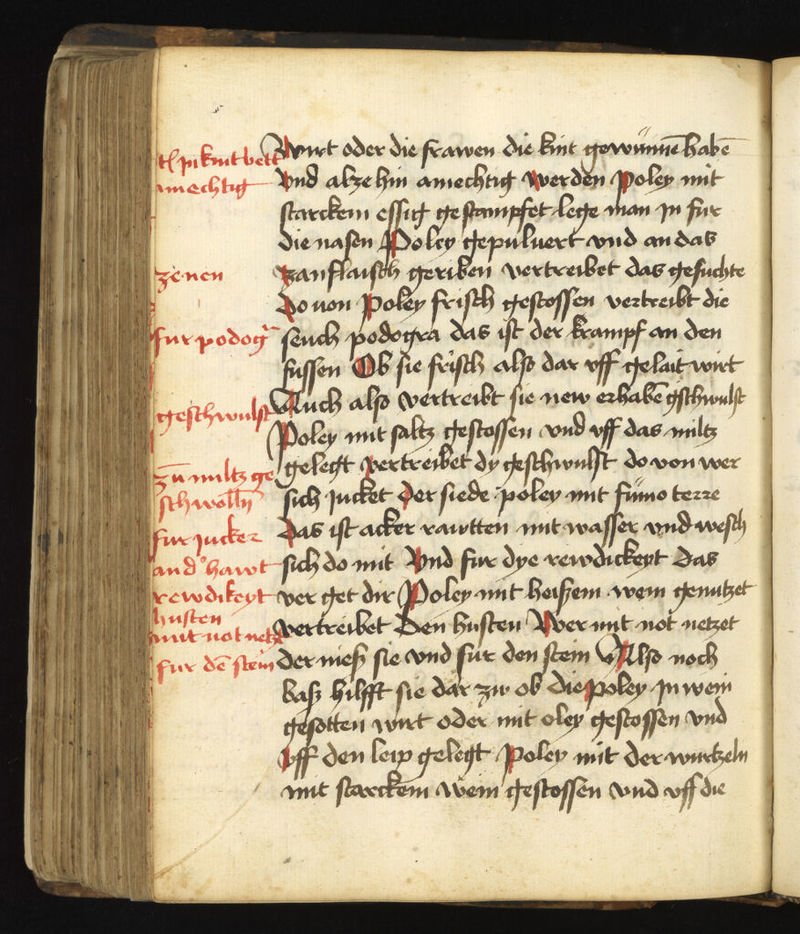 wirt oder die frawen die kint gewūnnē habē
vnd alzehin amechtig werden Poley mit
starckem essig gestampfet lege man jn fur
die nasen Poley gepuluert vnd an das
zanflaisch geriben vertreibet das gesuchte
Do von Poley frisch gestossen vertreibt die
seuch podogra das ist der krampf an den
fussen Ob sie frisch also dar vff gelait wirt
Auch also vertreibt sie new erhabē gschwulst
Poley mit saltz gestossen vnd vff das miltz
gelegt vertreibet dy geschwulst do von wer
sich jucket Der siede poley mit fumo terre
Das ist acker rawtten mit wasser vnd wesch
sich do mit Vnd fur dye rewdickeyt Das
ver get dir Poley mit heißem wein genutzet
vertreibet Den husten Wer mit not netzet
der nieß sie vnd fur den stein Also noch
baß hilfft sie dar zw ob die poley jn wein
gesotten wirt oder mit oley gestossen vnd
vff den leip gelegt Poley mit der wurtzeln
mit starckem wein gestossen vnd vff die
jn kint bett
amechtig
zenen
fur podog
geschwulst
zū miltz ge
schwollñ
fur jucker
an d hawt
rewdikeyt
husten
mit not netz
fur dē stein